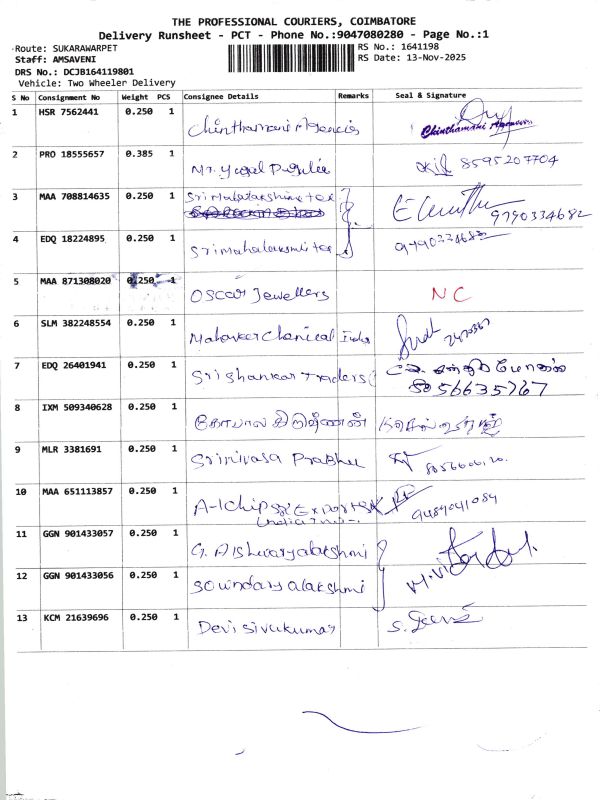 THE PROFESSIONAL COURIERS, COIMBATORE
Delivery Runsheet - PCT - Phone No.:9047080280 - Page No.:1
Route: SUKARAWARPET RS No.: 1641198
Staff: AMSAVENI RS Date: 13-Nov-2025
DRS No.: DCJB164119801
Vehicle: Two Wheeler Delivery
S No Consignment No Weight PCS Consignee Details Remarks Seal & Signature
1 HSR 7562441 0.250 1 Chinthamani Agencies Chinthamani Agencies
2 PRO 18555657 0.385 1 Mr. 8595207704
3 MAA 708814635 0.250 1 Sri Mahalakshmi tex 9790334682
4 EDQ 18224895 0.250 1 Sri Mahalakshmi tex 9790334682
5 MAA 871308020 0.250 1 Oscar Jewellers NC
6 SLM 382248554 0.250 1 Chemical India
7 EDQ 26401941 0.250 1 Sri Shankar Traders 8056635767
8 IXM 509340628 0.250 1 கோபால கிருஷ்ணன்
9 MLR 3381691 0.250 1 Srinivasa Prabhu
10 MAA 651113857 0.250 1 A-1 Chips Exports 9489041084
11 GGN 901433057 0.250 1 G. Aishwaryalakshmi
12 GGN 901433056 0.250 1 Soundaryalakshmi
13 KCM 21639696 0.250 1 Devi sivakumar